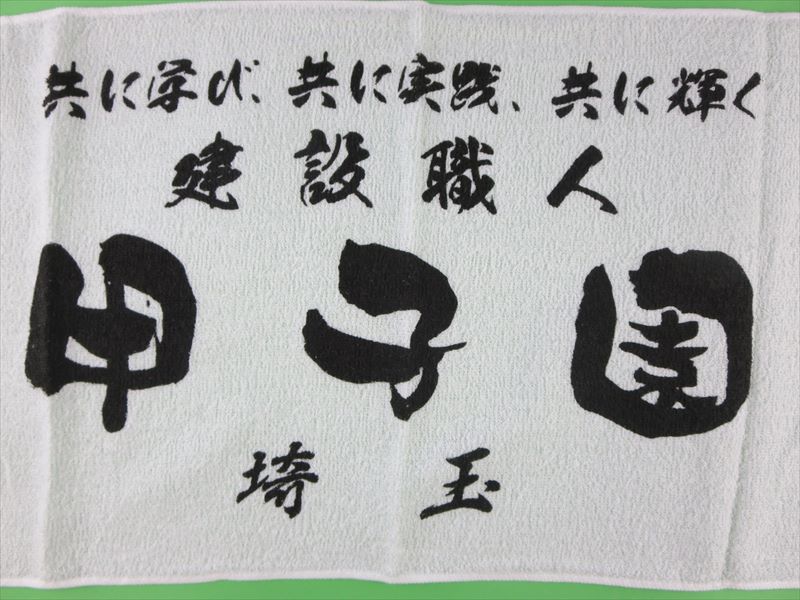 共に学び、共に実践、共に輝く
建設職人
甲子園
埼玉